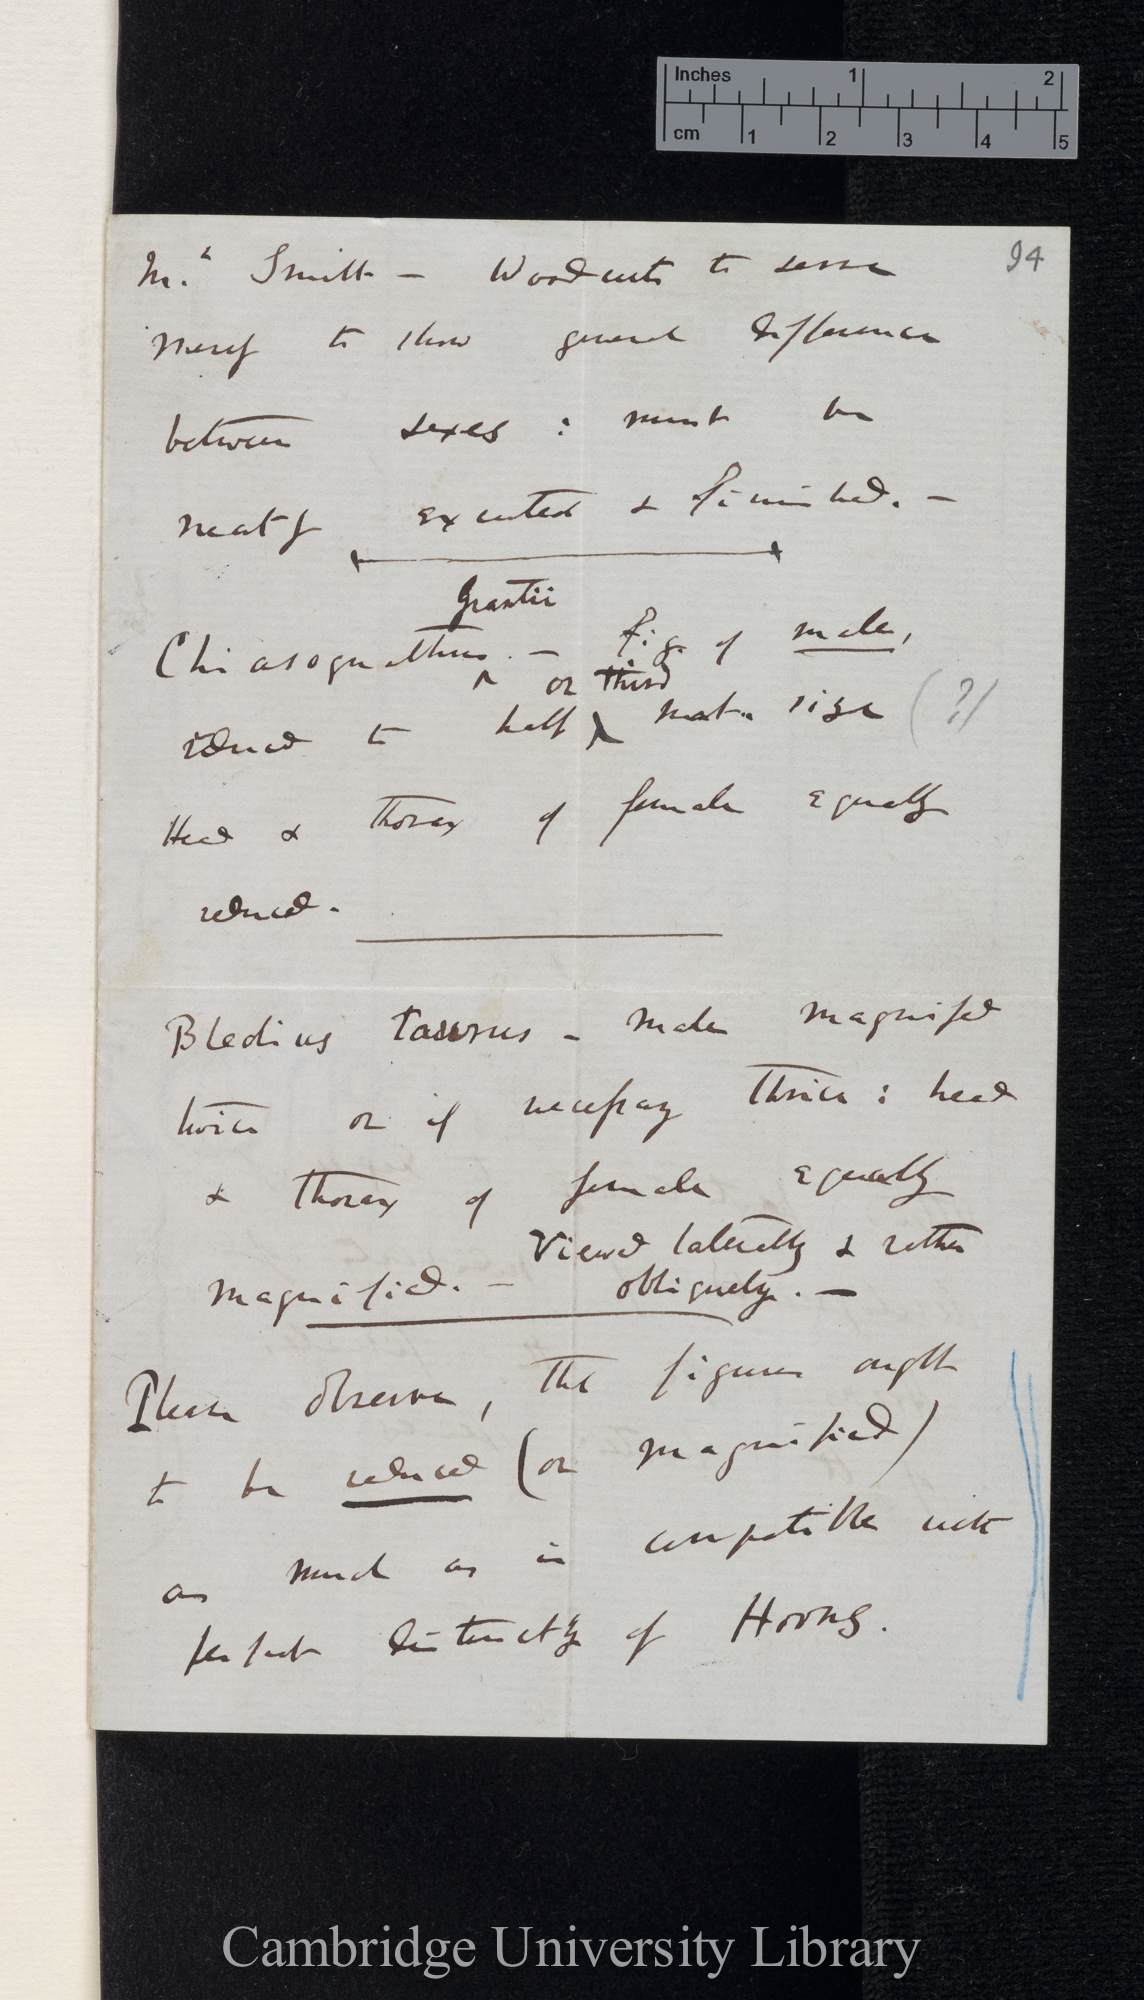 Inches 1 2
cm 1 2 3 4 5
94
Mr. Smith — Woodcuts to serve
merely to show general difference
between sexes : must be
neatly executed & finished. —
Grantii
Chiasognathus. — Fig. of male,
or third
reduced to half nat. size (?)
Head & thorax of female equally
reduced.
Bledius taurus — male magnified
twice or if necessary thrice : head
& thorax of female equally
Viewed laterally & rather
magnified. — obliquely. —
Please observe, the figures ought
to be reduced (or magnified)
as much as is compatible with
perfect distinctly of Horns.
Cambridge University Library